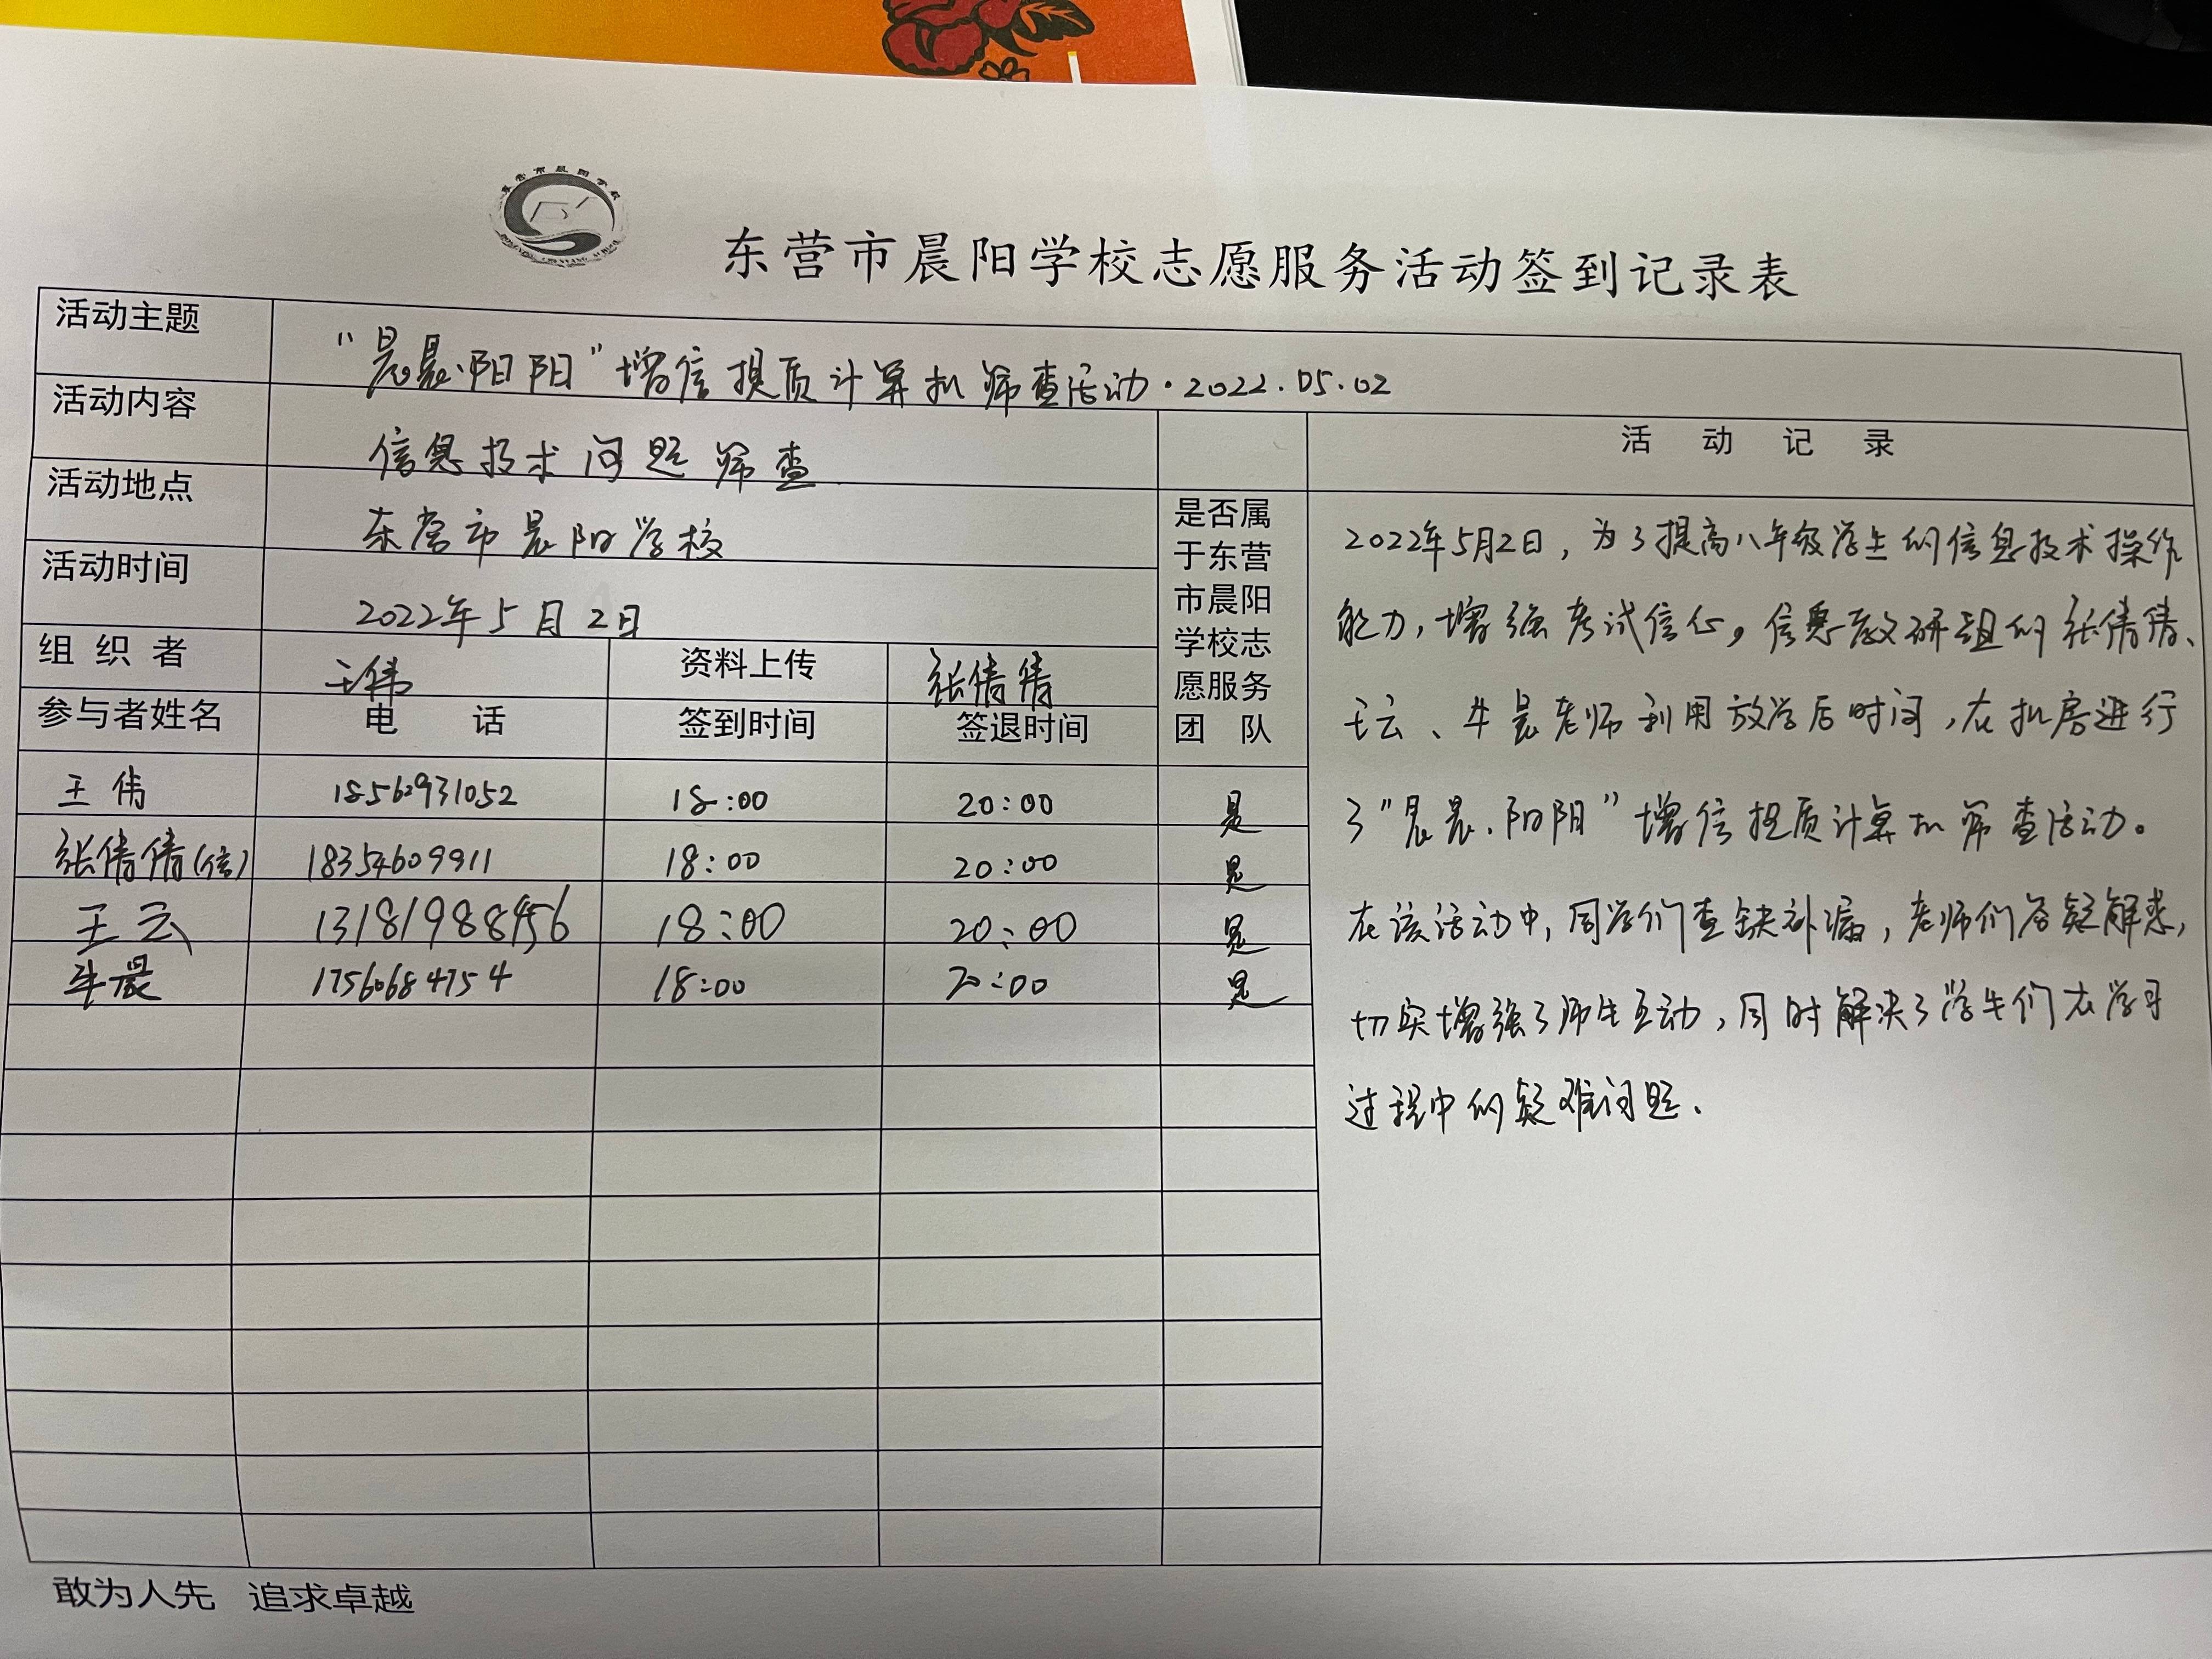 东营市晨阳学校志愿服务活动签到记录表
活动主题 "晨晨·阳阳"增信提质计算机筛查活动·2022.05.02
活动内容 信息技术问题筛查
活动地点 东营市晨阳学校
活动时间 2022年5月2日
组织者 王伟 资料上传 张倩倩
参与者姓名 电话 签到时间 签退时间
是否属
于东营
市晨阳
学校志
愿服务
团队
王伟 18562931052 18:00 20:00 是
张倩倩(信) 18354609911 18:00 20:00 是
王云 13181988456 18:00 20:00 是
牛晨 17560684754 18:00 20:00 是
活动记录
2022年5月2日,为了提高八年级学生的信息技术操作
能力,增强考试信心。信息教研组的张倩倩、
王云、牛晨老师利用放学后时间,在机房进行
了"晨晨·阳阳"增信提质计算机筛查活动。
在该活动中,同学们查缺补漏,老师们答疑解惑,
切实增强了师生互动,同时解决了学生们在学习
过程中的疑难问题.
敢为人先 追求卓越